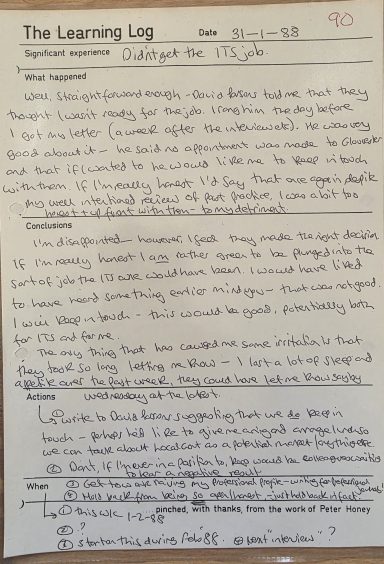 90
The Learning Log Date 31-1-88
Significant experience Didn't get the ITS job.
What happened
Well, straightforward enough - David Parsons told me that they
thought I wasn't ready for the job. I rang him the day before
I got my letter (a week after the interview etc). He was very
good about it - he said no appointment was made to Gloucester
and that if I wanted to he would like me to keep in touch
with them. If I'm really honest I'd say that once again despite
my well intentioned review of past practice, I was a bit too
honest + up front with them - to my detriment.
Conclusions
I'm disappointed - however, I feel they made the right decision
If I'm really honest I am rather green to be plunged into the
sort of job the ITS one would have been. I would have liked
to have heard something earlier mind you - that was not good.
I will keep in touch - this would be good, potentially both
for ITS and for me.
The only thing that has caused me some irritation is that
they took so long letting me know - I lost a lot of sleep and
appetite over the past week, they could have let me know say by
Actions Wednesday at the latest.
① write to David Parsons suggesting that we do keep in
touch - perhaps he'd like to give me a ring and arrange lunch so
we can talk about local govt as a potential market / anything else.
② Don't, if I'm ever in a position to, keep would be colleagues waiting
to hear a negative result
When ③ Get to work raising my professional profile - writing for professional
journals!
④ Hold back from being so open/honest - just hold back if fact
pinched, with thanks, from the work of Peter Honey
① this w/c 1-2-88
② ?
③ start on this during Feb '88. ④ next "interview" ?